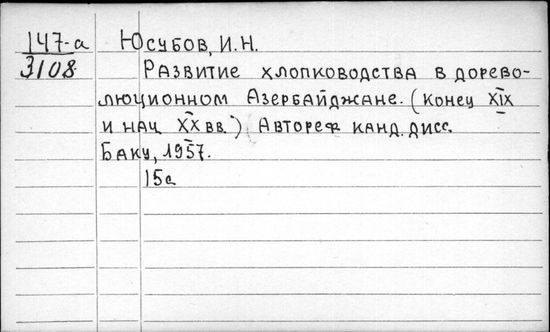 147-а Юсубов, И.Н.
3108 Развитие хлопководства в дорево-
люционном Азербайджане. (конец XIX
и нач XX вв.) Автореф канд. дисс.
Баку, 1957.
15с